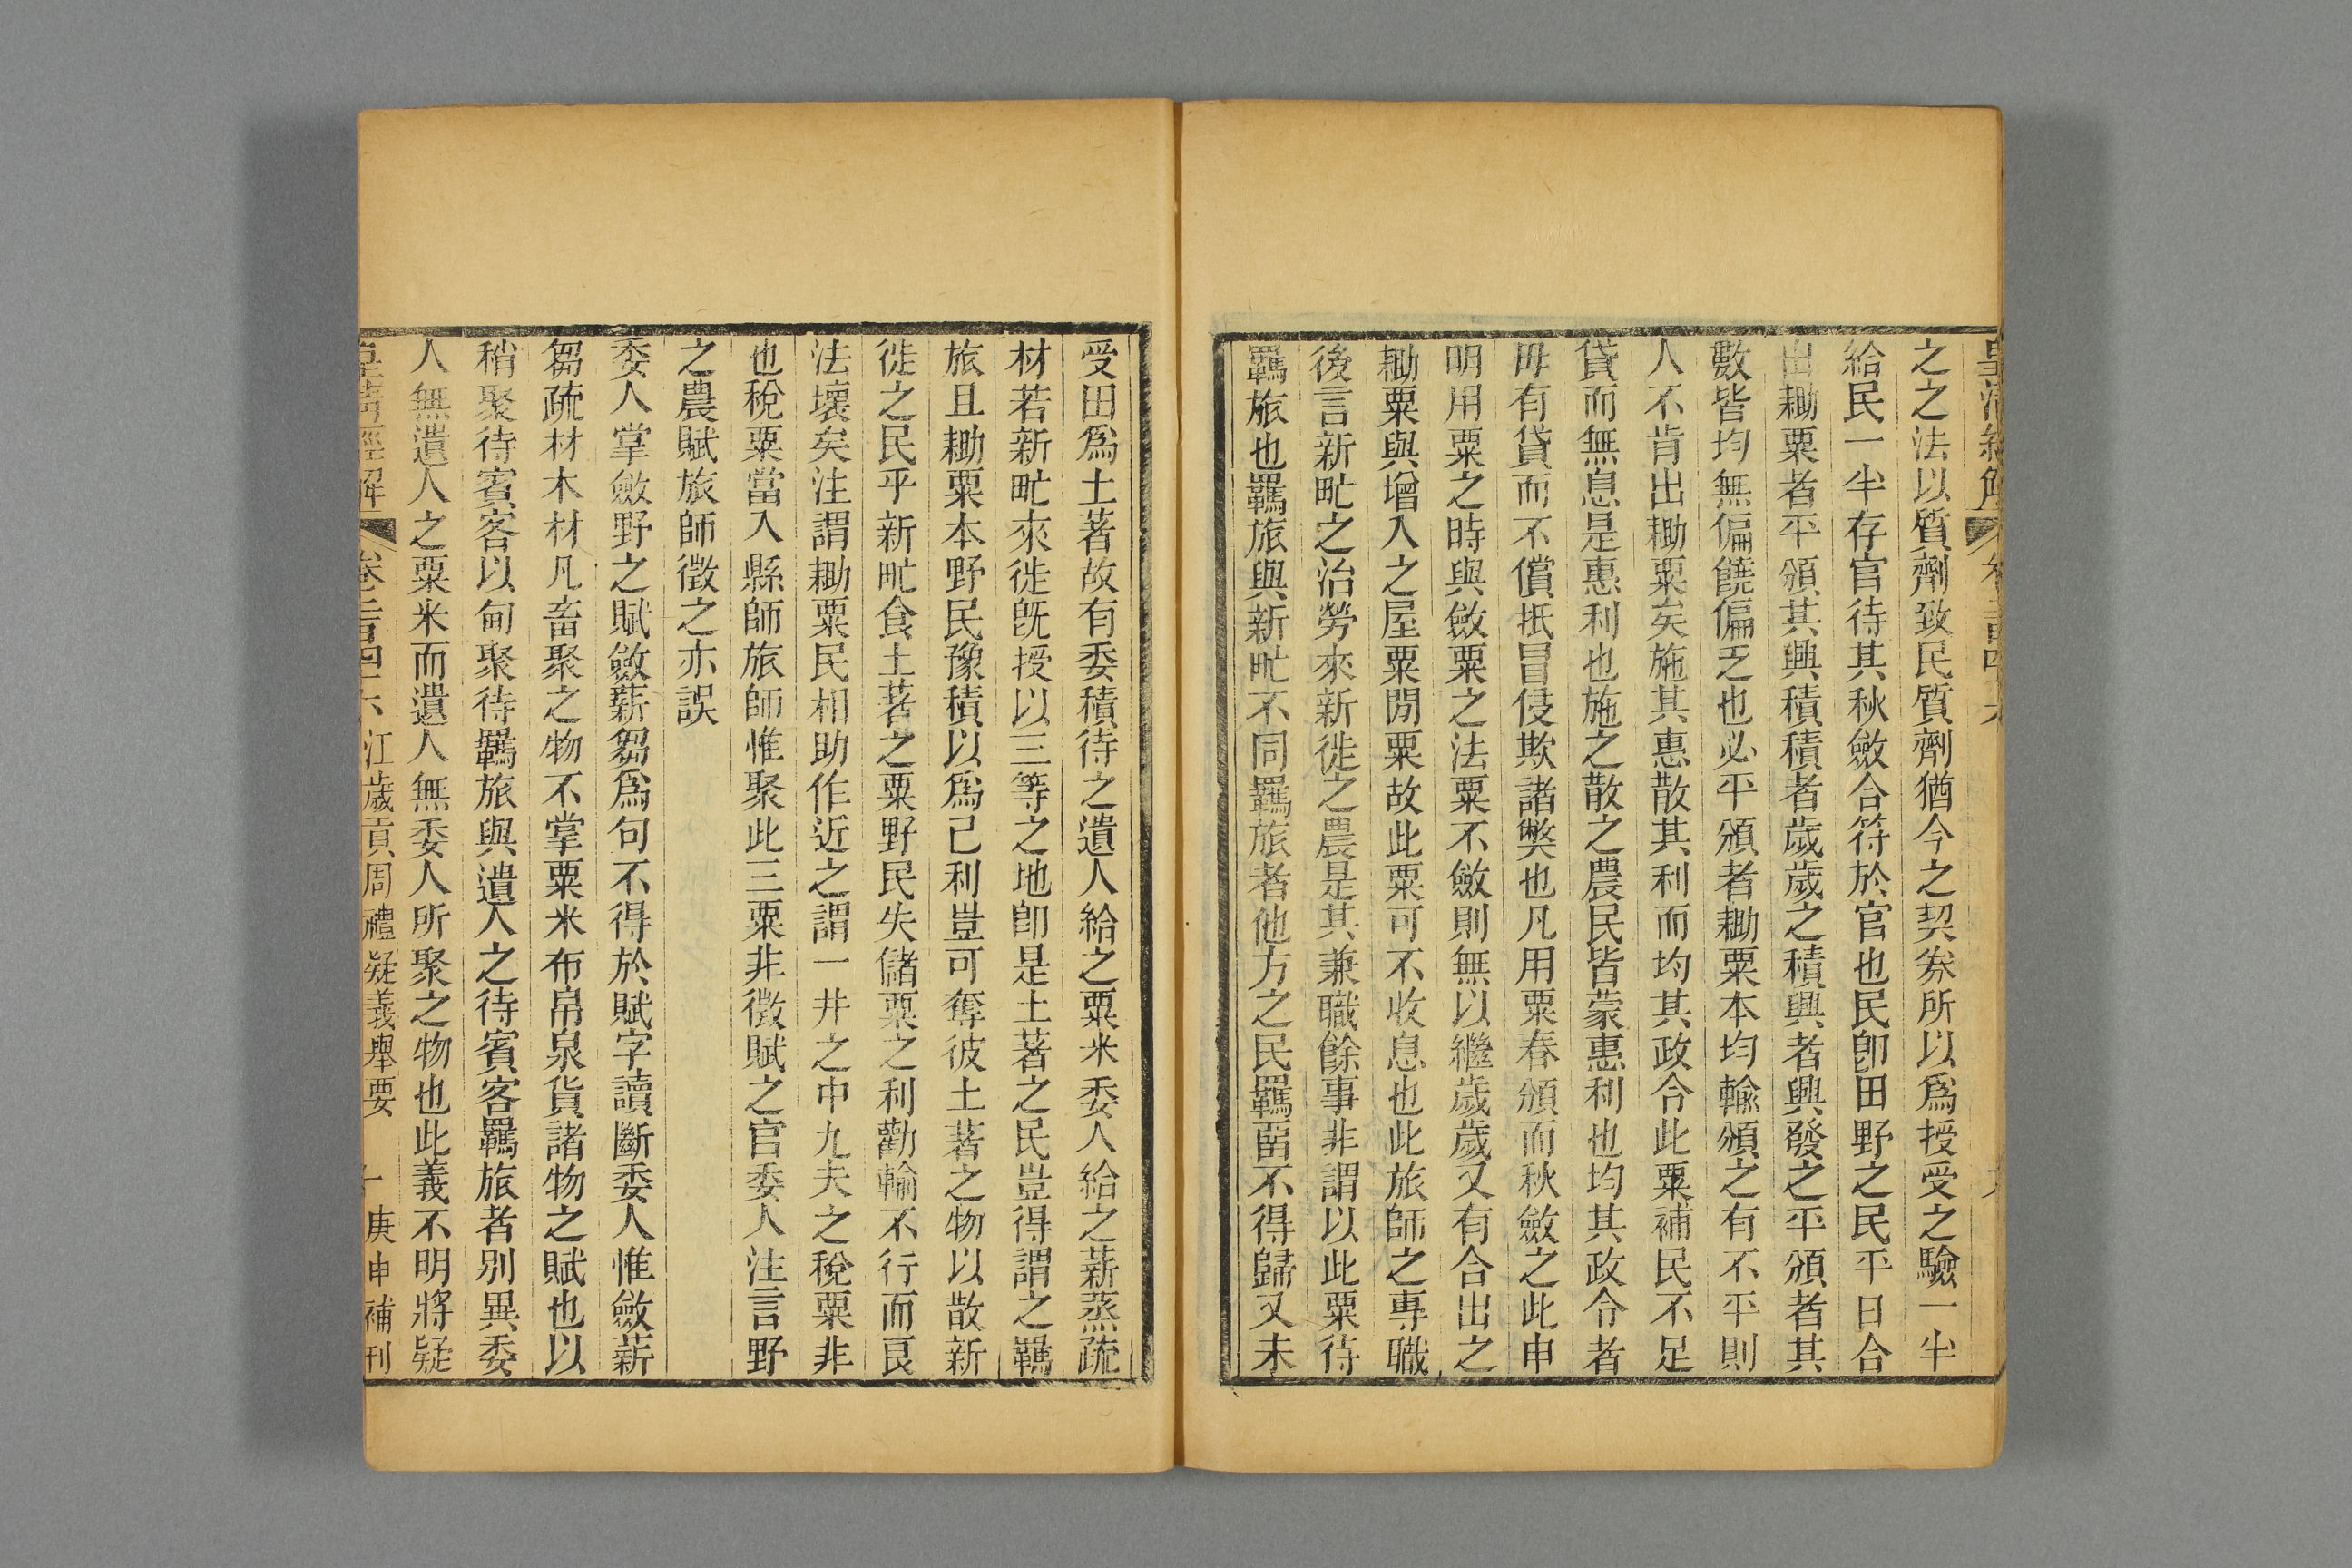 皇清經解 卷二百四十六 九
之之法以質劑致民質劑猶今之契券所以爲授受之驗一半
給民一半存官待其秋斂合符於官也民卽田野之民平日合
出耡粟者平頒其興積積者歲歲之積興者興發之平頒者其
數皆均無偏饒偏乏也必平頒者耡粟本均輸頒之有不平則
人不肯出耡粟矣施其惠散其利而均其政令此粟補民不足
貸而無息是惠利也施之散之農民皆蒙惠利也均其政令者
毋有貸而不償抵冒侵欺諸獘也凡用粟春頒而秋斂之此申
明用粟之時與斂粟之法粟不斂則無以繼歲歲又有合出之
耡粟與增入之屋粟閒粟故此粟可不收息也此旅師之專職
後言新甿之治勞來新徙之農是其兼職餘事非謂以此粟待
羈旅也羈旅與新甿不同羈旅者他方之民羈畱不得歸又未
受田爲土著故有委積待之遺人給之粟米委人給之薪蒸疏
材若新甿來徙旣授以三等之地卽是土著之民豈得謂之羈
旅且耡粟本野民豫積以爲己利豈可奪彼土著之物以散新
徙之民乎新甿食土著之粟野民失儲粟之利勸輸不行而良
法壞矣注謂耡粟民相助作近之謂一井之中九夫之稅粟非
也稅粟當入縣師旅師惟聚此三粟非徵賦之官委人注言野
之農賦旅師徵之亦誤
委人掌斂野之賦斂薪芻爲句不得於賦字讀斷委人惟斂薪
芻疏材木材凡畜聚之物不掌粟米布帛泉貨諸物之賦也以
稍聚待賓客以甸聚待羈旅與遺人之待賓客羈旅者別異委
人無遺人之粟米而遺人無委人所聚之物也此義不明將疑
皇清經解 卷二百四十六 江歲貢周禮疑義舉要 十 庚申補刊